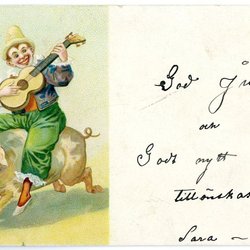 God J
och
Godt nytt
tillönskas
Sara